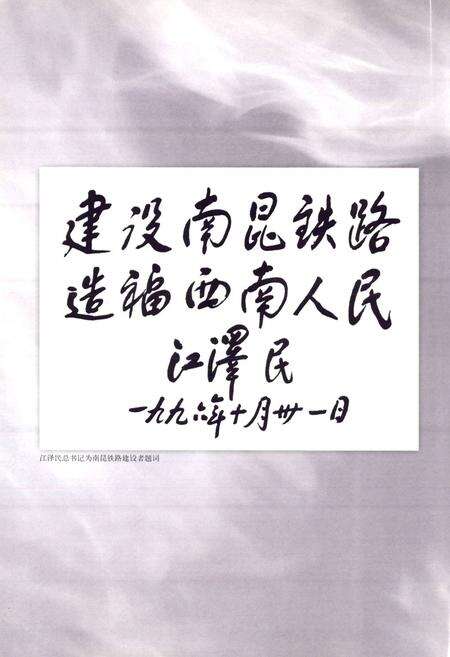 建设南昆铁路
造福西南人民
江澤民
一九九六年十月卅一日
江泽民总书记为南昆铁路建设者题词